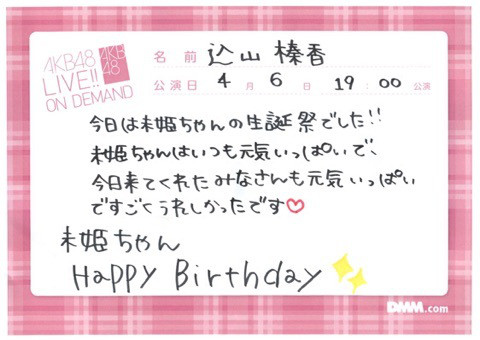 AKB48
LIVE!!
ON DEMAND
AKB
48
名前 込山榛香
公演日 4月6日 19:00公演
今日は未姫ちゃんの生誕祭でした!!
未姫ちゃんはいつも元気いっぱいで、
今日来てくれたみなさんも元気いっぱい
ですごくうれしかったです♡
未姫ちゃん
HaPPY Birthday
DMM.com